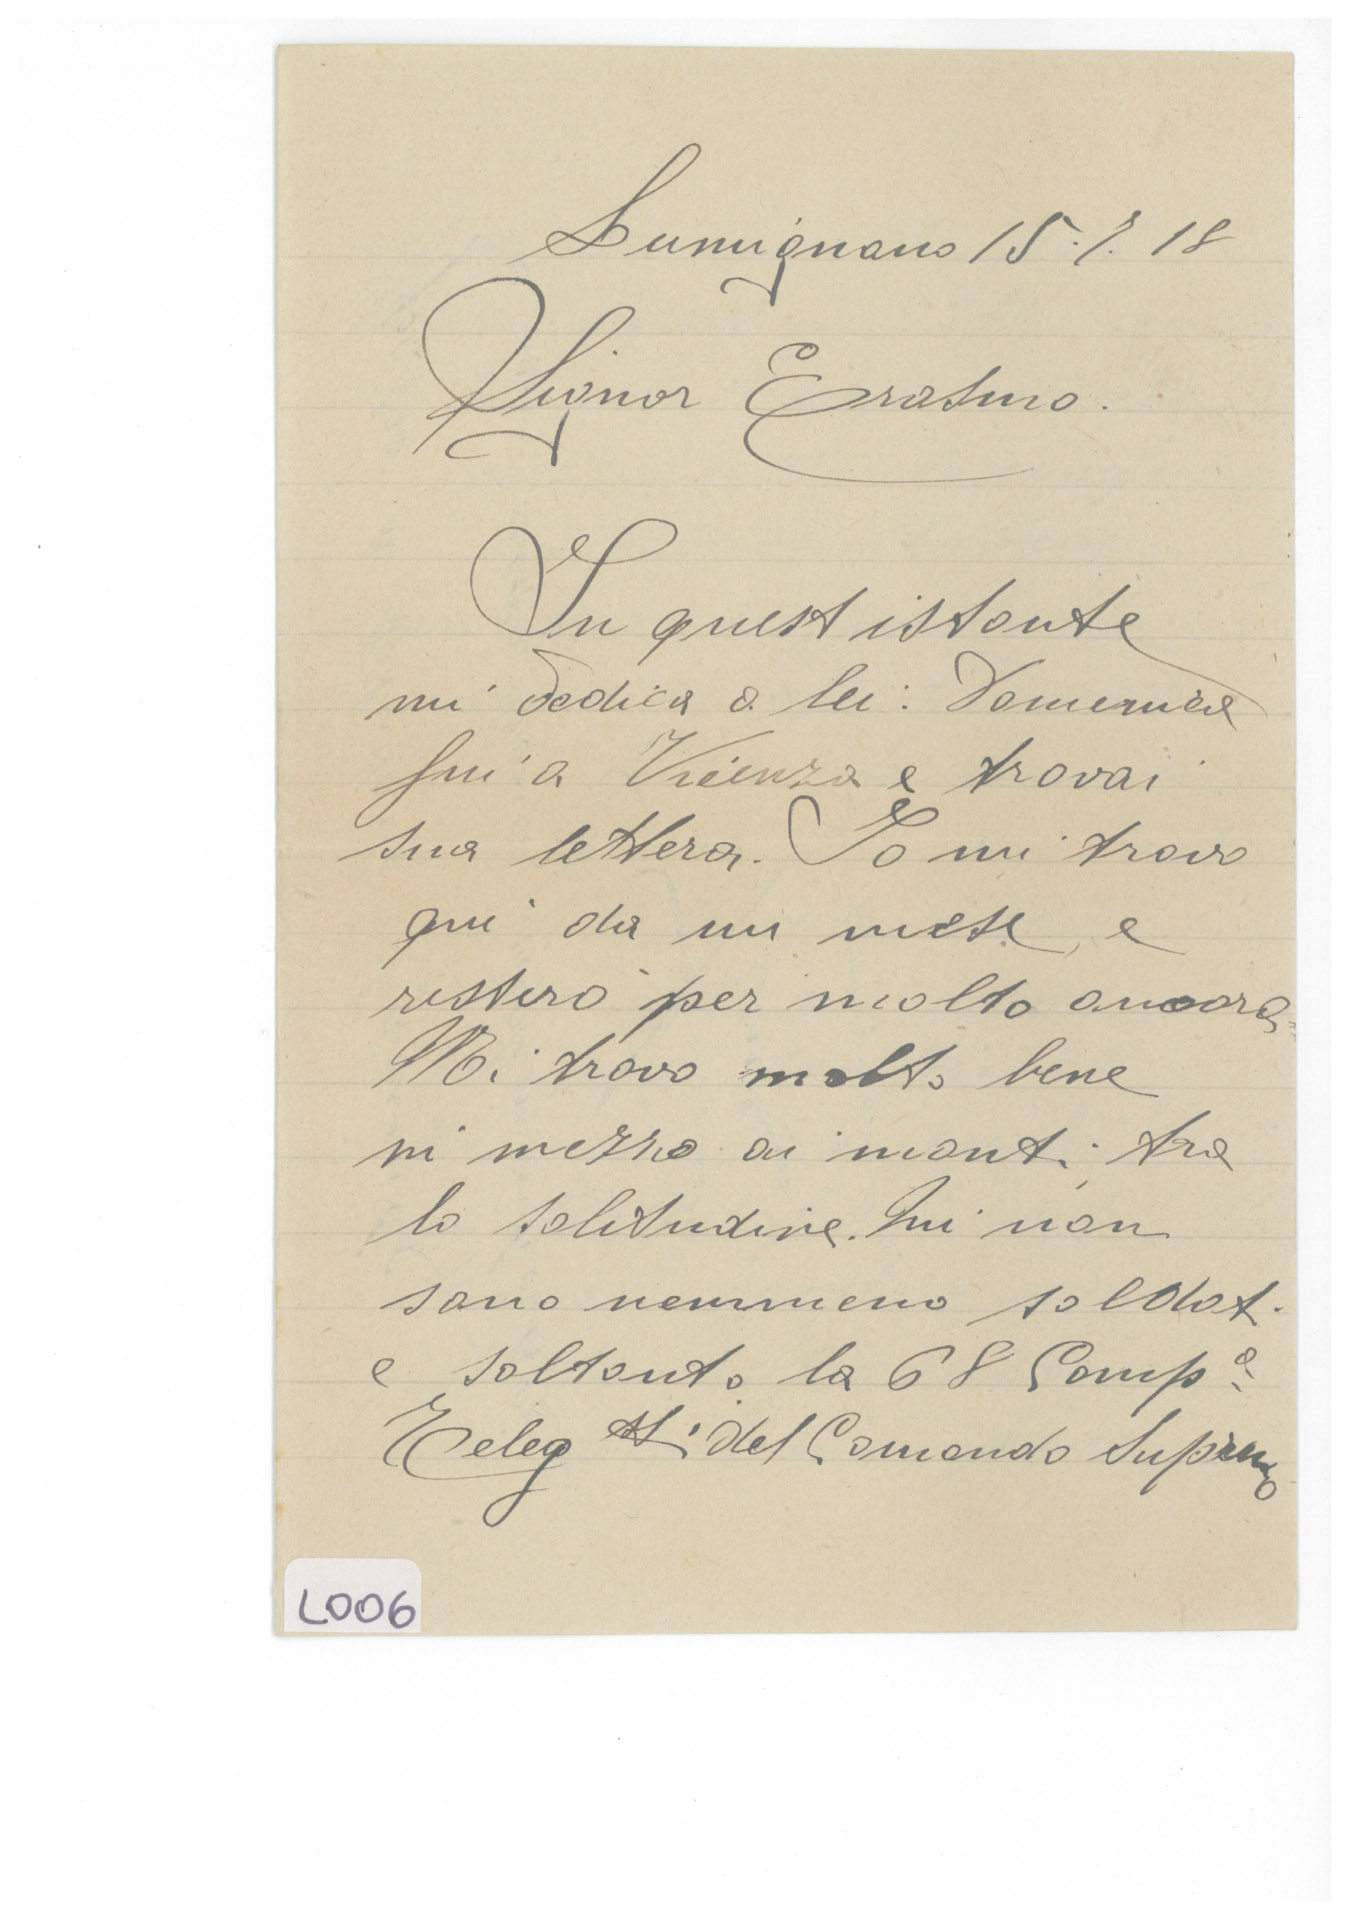 Lumignano 15.7.18
Signor Erasmo.
In quest istante
mi dedica a lei: Domenica
fui a Vicenza e trovai
sua lettera. Io mi trovo
qui da un mese, e
resterò per molto ancora
Mi trovo molto bene
in mezzo ai monti, tra
la solitudine. Qui non
sono nemmeno soldat.
e soltanto la 68 Compª
Teleg sti del Comando Supremo
L006